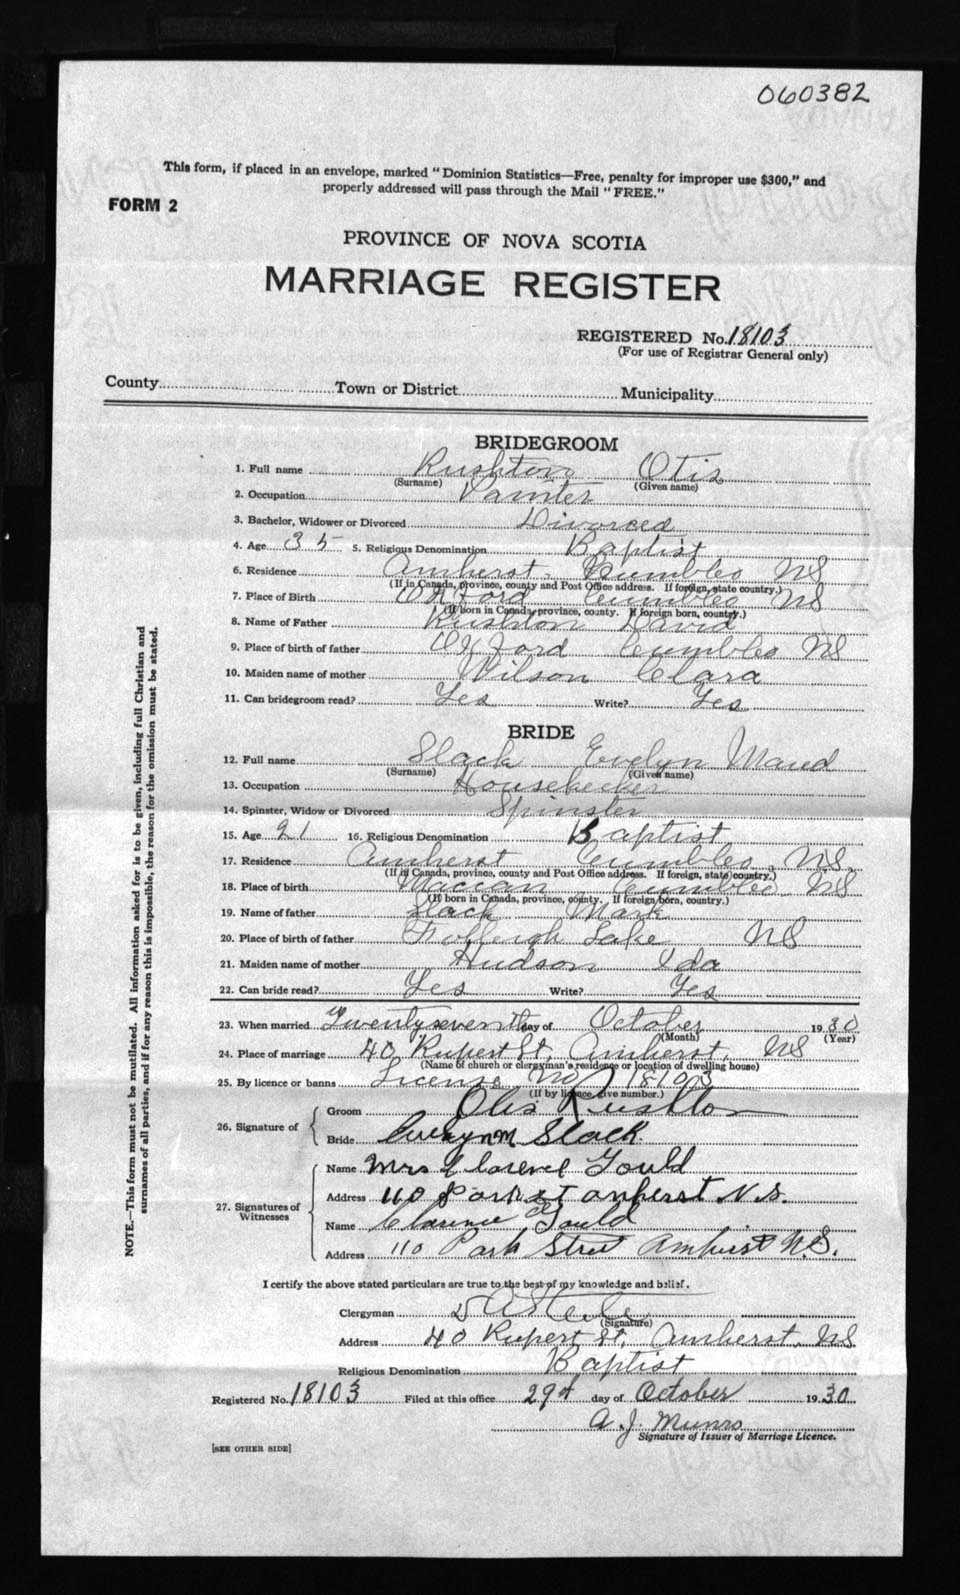 060382
This form, if placed in an envelope, marked "Dominion Statistics—Free, penalty for improper use $300," and
properly addressed will pass through the Mail "FREE."
FORM 2
PROVINCE OF NOVA SCOTIA
MARRIAGE REGISTER
REGISTERED No. 18103
(For use of Registrar General only)
County Town or District Municipality
BRIDEGROOM
1. Full name Rushton Otis
(Surname) (Given name)
2. Occupation Painter
3. Bachelor, Widower or Divorced Divorced
4. Age 35 5. Religious Denomination Baptist
6. Residence Amherst Cumbles NS
(If in Canada, province, county and Post Office address. If foreign, state country.)
7. Place of Birth Oxford Cumbles NS
(If born in Canada, province, county. If foreign born, country.)
8. Name of Father Rushton David
9. Place of birth of father Oxford Cumbles NS
10. Maiden name of mother Wilson Clara
11. Can bridegroom read? Yes Write? Yes
BRIDE
12. Full name Slack Evelyn Maud
(Surname) (Given name)
13. Occupation Housekeeker
14. Spinster, Widow or Divorced Spinster
15. Age 21 16. Religious Denomination Baptist
17. Residence Amherst Cumbles NS
(If in Canada, province, county and Post Office address. If foreign, state country.)
18. Place of birth Maccan Cumbles NS
(If born in Canada, province, county. If foreign born, country.)
19. Name of father Slack Mark
20. Place of birth of father Lake NS
21. Maiden name of mother Hudson Ida
22. Can bride read? Yes Write? Yes
23. When married Twentyseventh day of October 1930
(Month) (Year)
24. Place of marriage 40 Rupert St, Amherst, NS
(Name of church or clergyman's residence or location of dwelling house)
25. By licence or banns License No 18103
(If by licence, give number.)
26. Signature of Groom Otis Rushton
Bride Evelyn M Slack
27. Signatures of Witnesses Name Mrs Clarence Gould
Address 110 Park St Amherst N.S.
Name Clarence Gould
Address 110 Park Street Amherst N.S.
I certify the above stated particulars are true to the best of my knowledge and belief.
Clergyman D A Steele
(Signature)
Address 40 Rupert St, Amherst, NS
Religious Denomination Baptist
Registered No. 18103 Filed at this office 29th day of October 1930
A. J. Munro
Signature of Issuer of Marriage Licence.
[SEE OTHER SIDE]
NOTE.—This form must not be mutilated. All information asked for is to be given, including full Christian and
surnames of all parties, and if for any reason this is impossible, the reason for the omission must be stated.